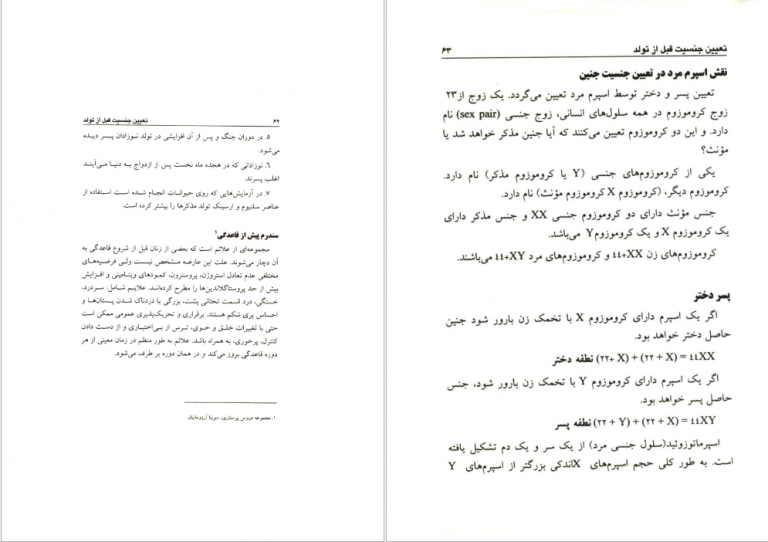 ۶۲ تعیین جنسیت قبل از تولد
۵. در دوران جنگ و پس از آن افزایشی در تولد نوزادان پسر دیده
می‌شود.
۶. نوزادانی که در هجده ماه نخست پس از ازدواج به دنیا می‌آیند
اغلب پسرند.
۷. در آزمایش‌هایی که روی حیوانات انجام شده است استفاده از
عناصر سلنیوم و ارسنیک تولد مذکرها را بیشتر کرده است.
سندرم پیش از قاعدگی۱
مجموعه‌ای از علائم است که بعضی از زنان قبل از شروع قاعدگی به
آن دچار می‌شوند. علت این عارضه مشخص نیست ولی فرضیه‌های
مختلفی عدم تعادل استروژن، پروسترون، کمبودهای ویتامینی و افزایش
بیش از حد پروستاگلاندین‌ها را مطرح کرده‌اند. علایم شامل: سردرد،
خستگی، درد قسمت تحتانی پشت، بزرگی یا دردناک شدن پستان‌ها و
احساس پری شکم هستند. برقراری و تحریک‌پذیری عمومی ممکن است
حتی با تغییرات خلق و خوی، ترس از بی‌اختیاری و از دست دادن
کنترل، پرخوری، به همراه باشد. علائم به طور منظم در زمان معینی از هر
دوره قاعدگی بروز می‌کند و در همان دوره بر طرف می‌شود.
۱. مجموعه دروس پرستاری، سونیا آرزومانیان
تعیین جنسیت قبل از تولد ۶۳
نقش اسپرم مرد در تعیین جنسیت جنین
تعیین پسر و دختر توسط اسپرم مرد تعیین می‌گردد. یک زوج از۲۳
زوج کروموزوم در همه سلول‌های انسانی، زوج جنسی (sex pair) نام
دارد. و این دو کروموزوم تعیین می‌کنند که آیا جنین مذکر خواهد شد یا
مؤنث؟
یکی از کروموزوم‌های جنسی (Y یا کروموزوم مذکر) نام دارد.
کروموزوم دیگر، (کروموزوم X کروموزوم مؤنث) نام دارد.
جنس مؤنث دارای دو کروموزوم جنسی XX و جنس مذکر دارای
یک کروموزوم X و یک کروموزوم Y می‌باشد.
کروموزوم‌های زن ٤٤+XX و کروموزوم‌های مرد ٤٤+XY می‌باشند.
پسر دختر
اگر یک اسپرم دارای کروموزوم X با تخمک زن بارور شود جنین
حاصل دختر خواهد بود.
(۲۲+ X) + (۲۲ + X) = ٤٤XX نطفه دختر
اگر یک اسپرم دارای کروموزوم Y با تخمک زن بارور شود، جنس
حاصل پسر خواهد بود.
(۲۲ + Y) + (۲۲ + X) = ٤٤XY نطفه پسر
اسپرماتوزوئید(سلول جنسی مرد) از یک سر و یک دم تشکیل یافته
است. به طور کلی حجم اسپرم‌های Xاندکی بزرگتر از اسپرم‌های Y